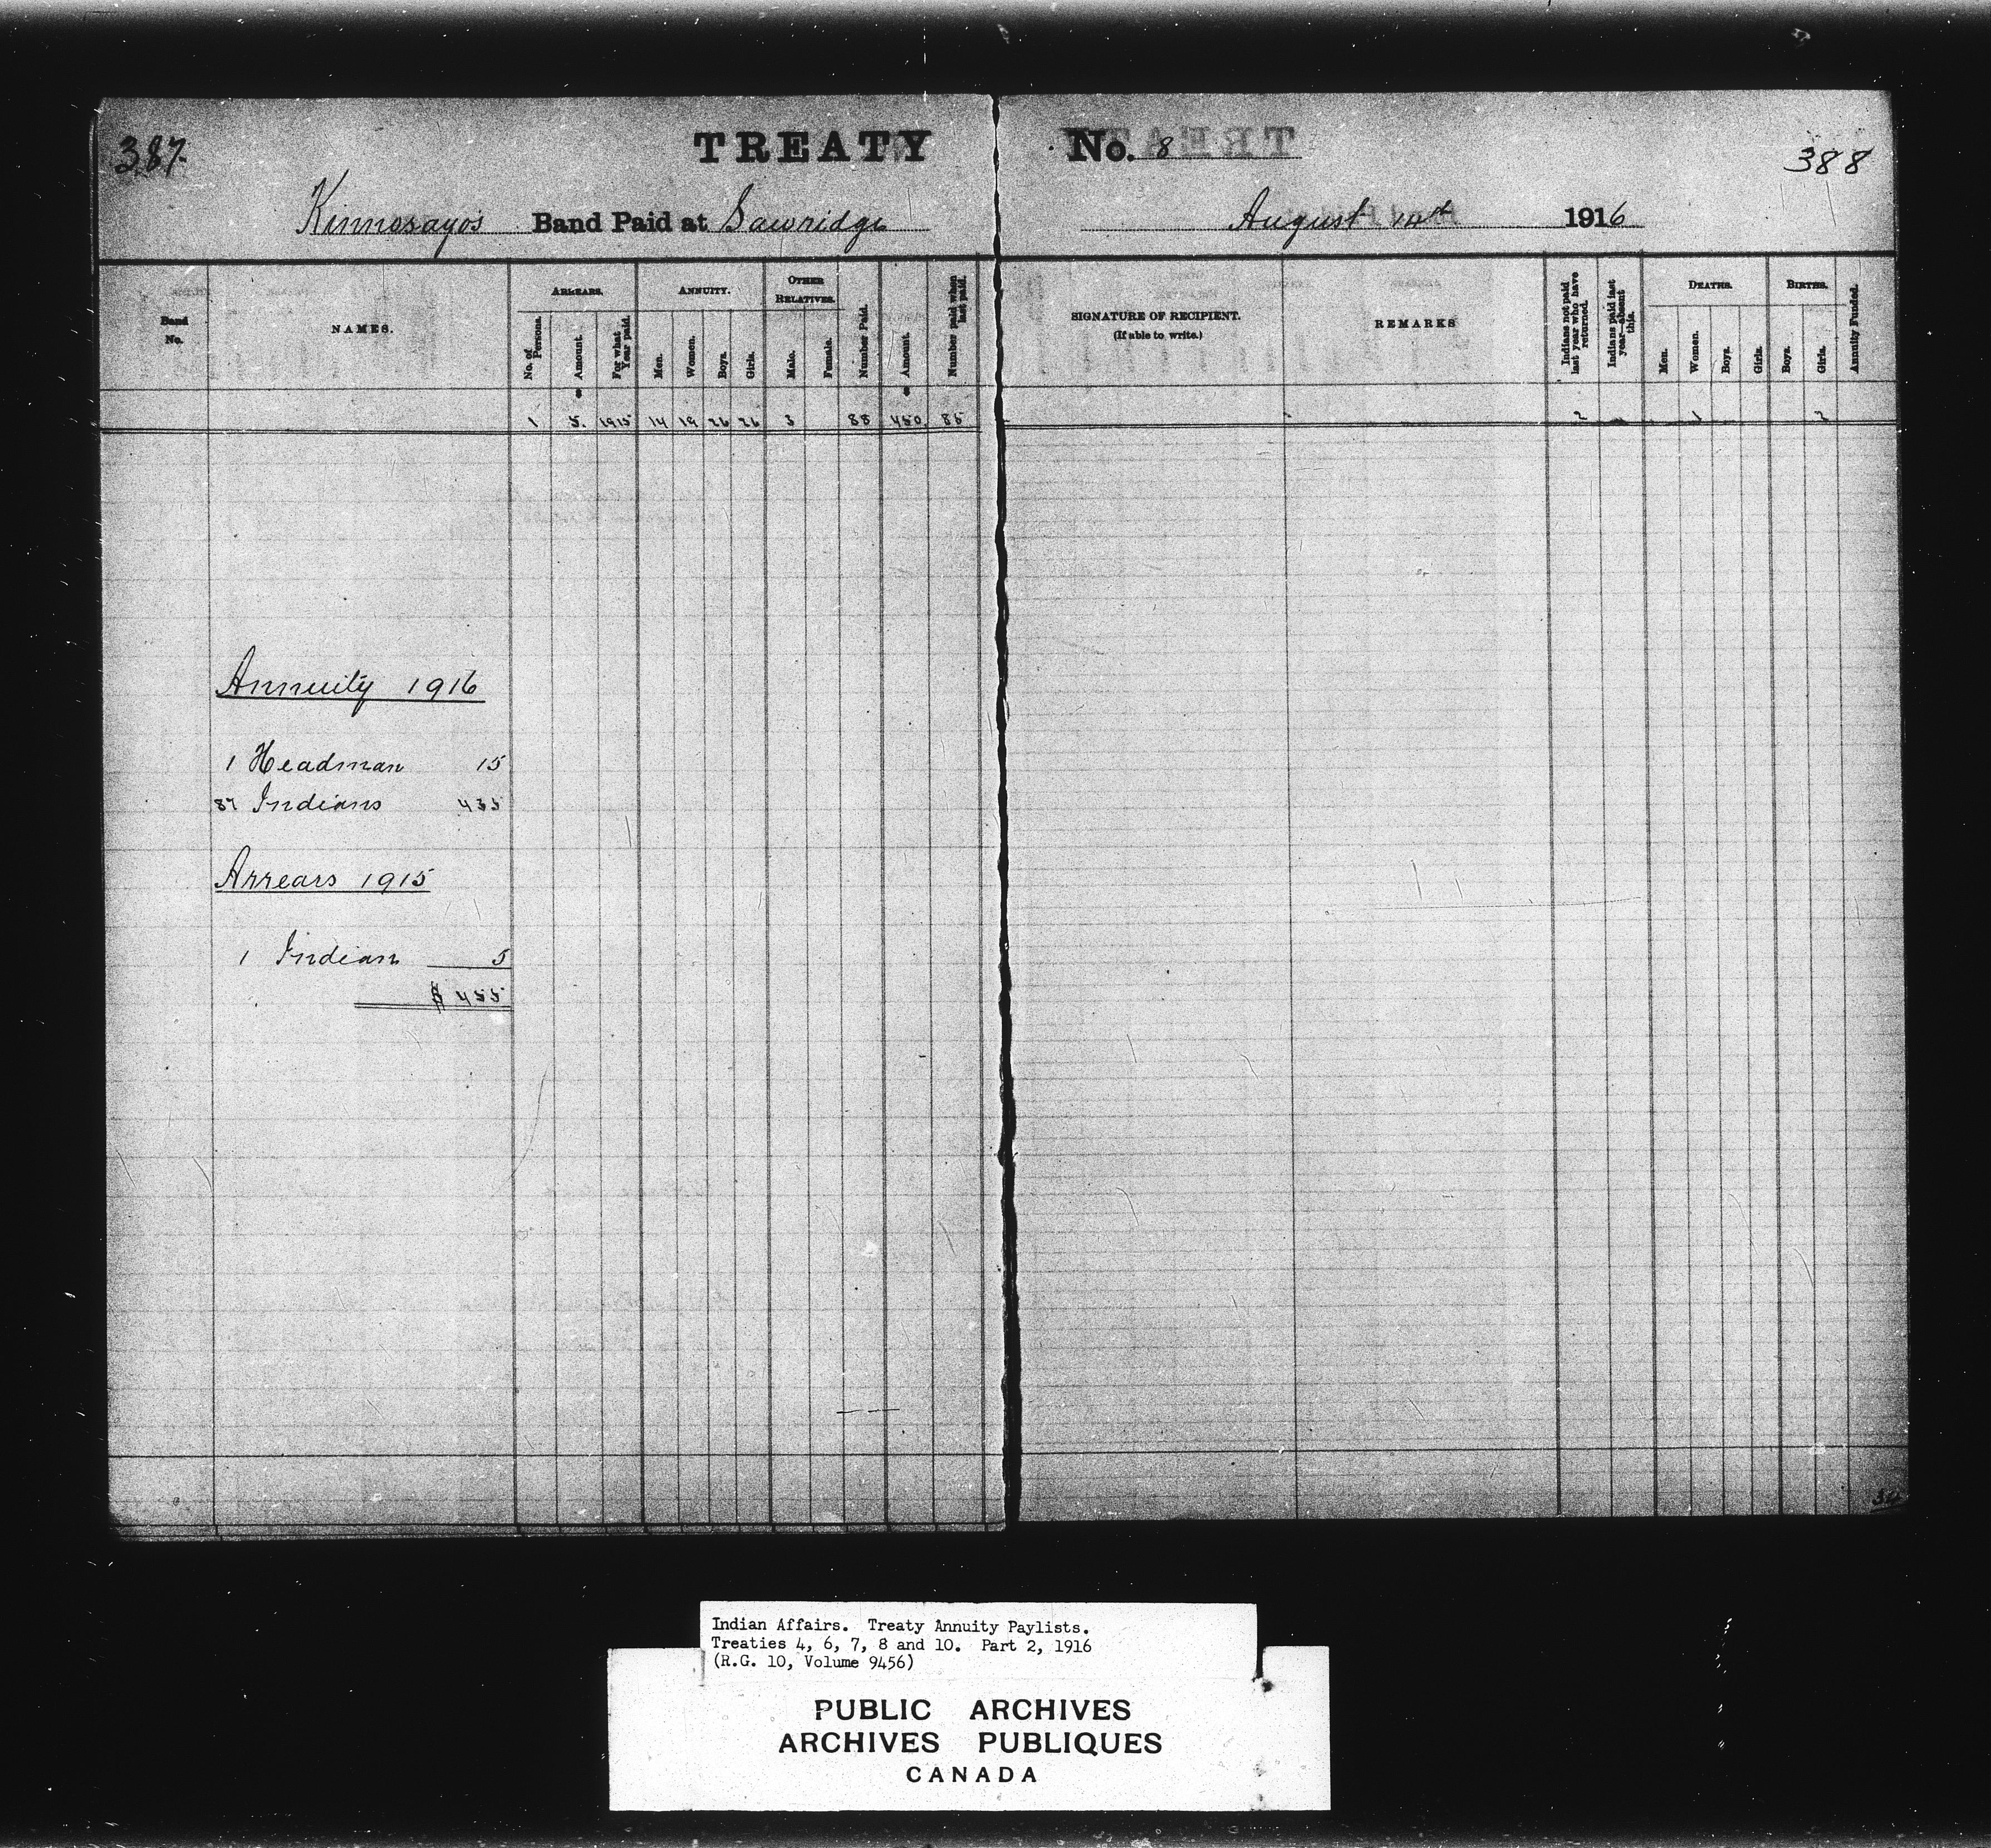 387
TREATY No. 8
388
Kinnosayos Band Paid at Sawridge August 1916
Band No.
NAMES.
ARREARS.
No. of Persons.
Amount.
For what Year paid.
ANNUITY.
Men.
Women.
Boys.
Girls.
OTHER RELATIVES.
Male.
Female.
Number Paid.
Amount.
Number paid when last paid.
SIGNATURE OF RECIPIENT.
(If able to write.)
REMARKS
Indians not paid last year who have returned.
Indians paid last year—absent this.
DEATHS.
Men.
Women.
Boys.
Girls.
BIRTHS.
Boys.
Girls.
Annuity Funded.
1 5. 1915 14 19 26 26 3 88 450. 85 2 1 2
Annuity 1916
1 Headman 15
87 Indians 435
Arrears 1915
1 Indian 5
$ 455
Indian Affairs. Treaty Annuity Paylists.
Treaties 4, 6, 7, 8 and 10. Part 2, 1916
(R.G. 10, Volume 9456)
PUBLIC ARCHIVES
ARCHIVES PUBLIQUES
CANADA